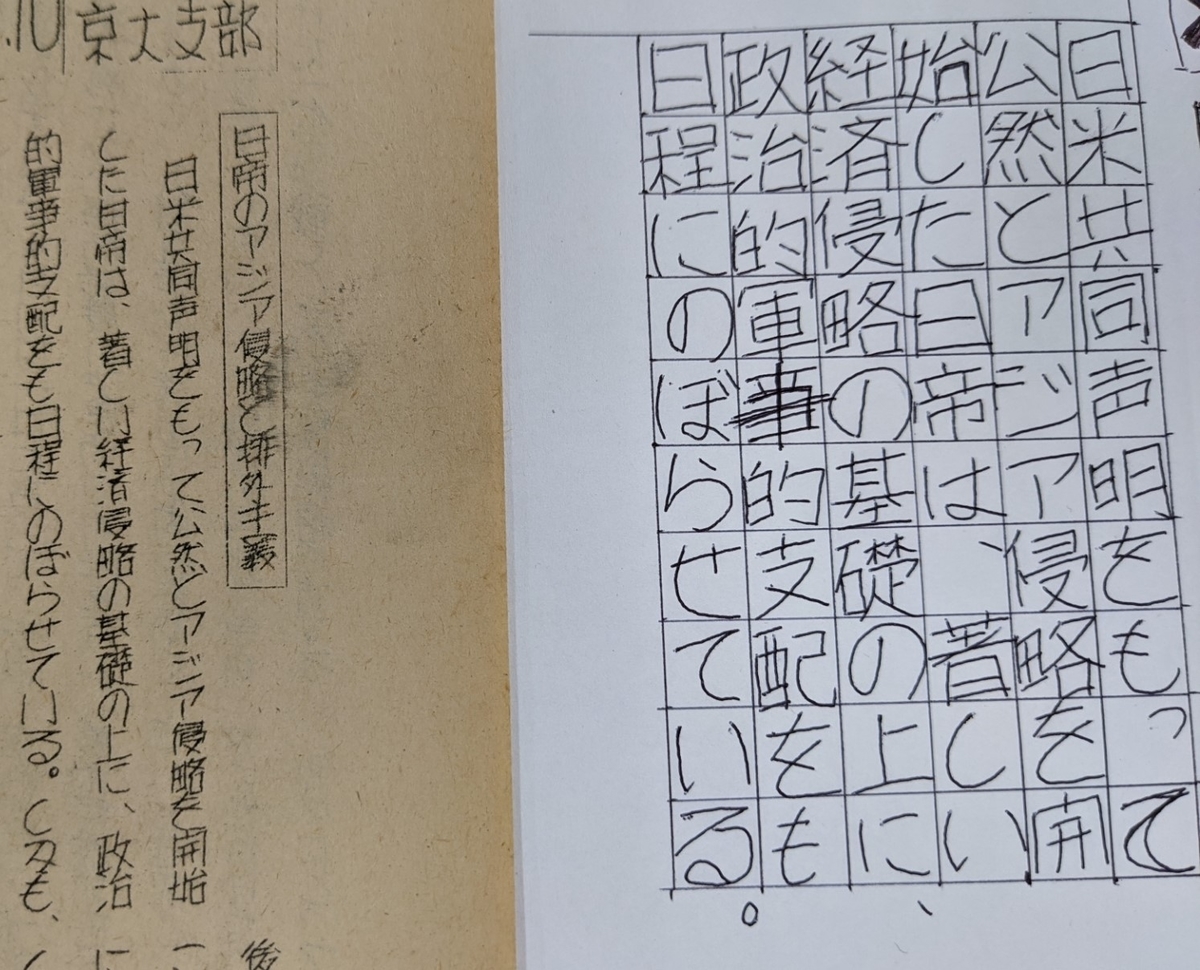 10 京大支部
日帝のアジア侵略と排外主義
日米共同声明をもって公然とアジア侵略を開始
した日帝は、著しい経済侵略の基礎の上に、政治
的軍事的支配をも日程にのぼらせている。しかも、
後
に
日米共同声明をもって
公然とアジア侵略を開
始した日帝は、著しい
経済侵略の基礎の上に、
政治的軍事的支配をも
日程にのぼらせている。